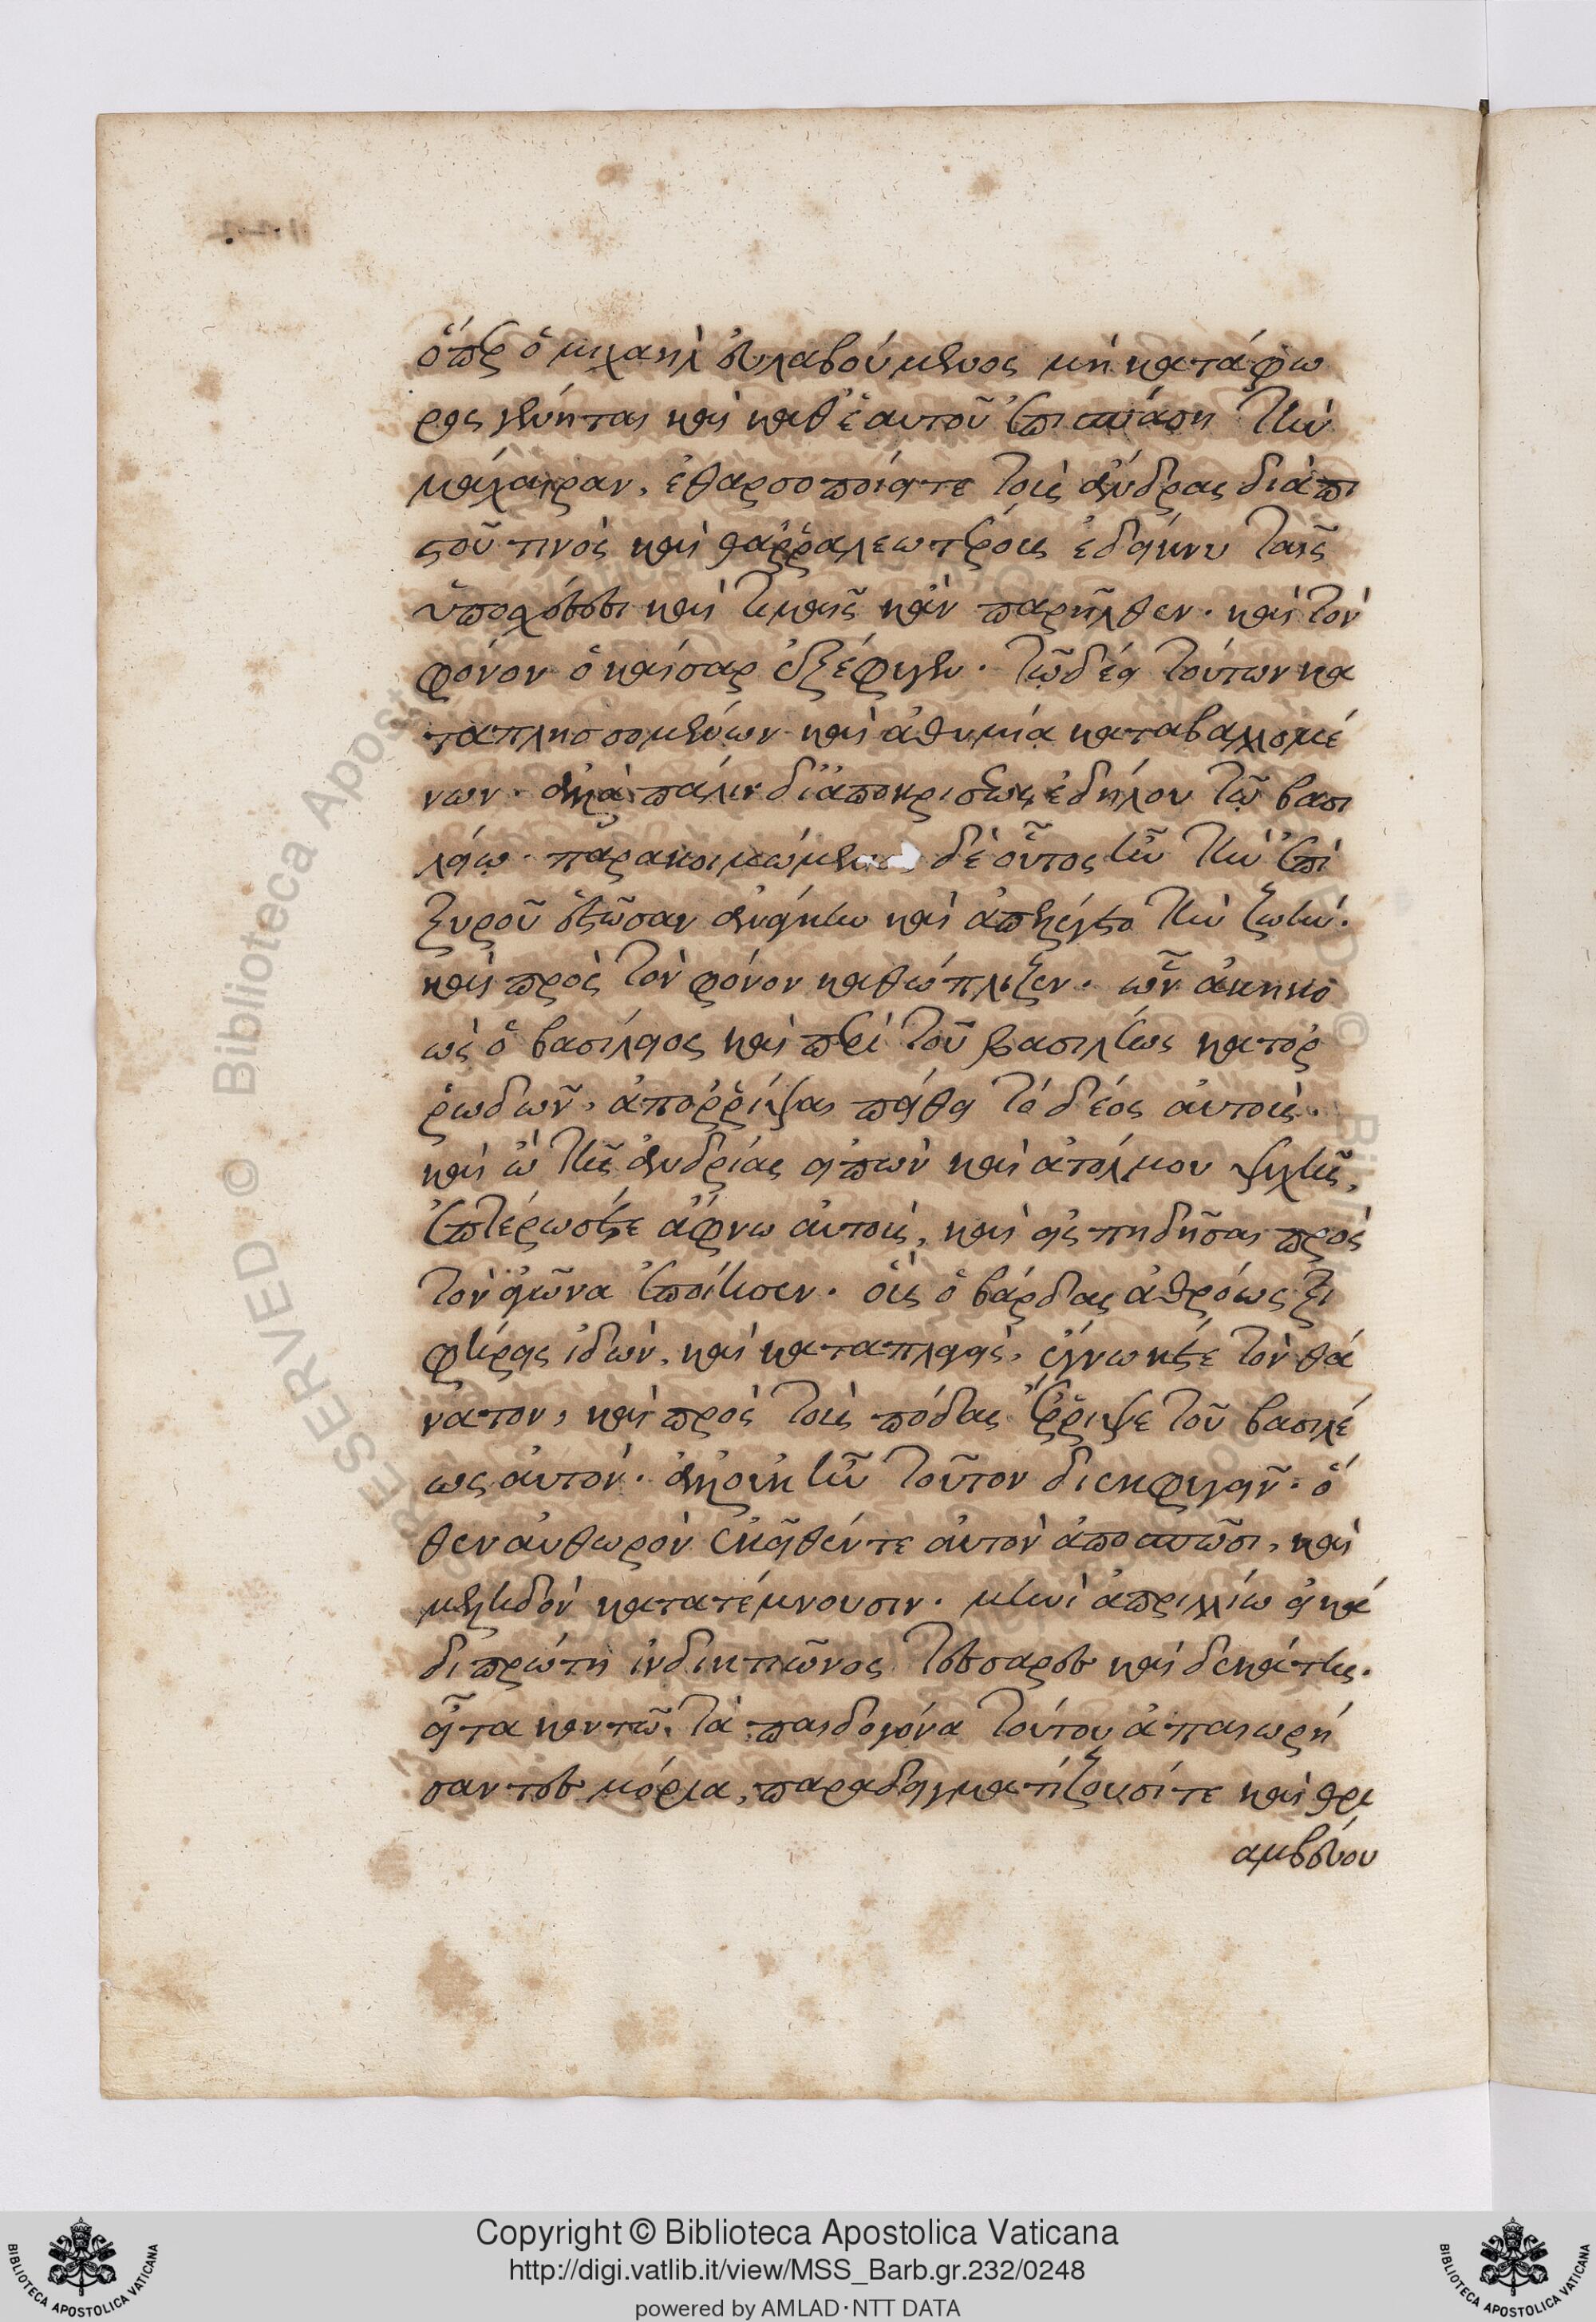 ὅπερ ὁ μιχαὴλ εὐλαβούμενος μὴ κατάφω
ρος γένηται καὶ καθ' ἑαυτοῦ ἐπισπάση τὴν
μάχαιραν, ἐθαρσοποίει τε τοὺς ἄνδρας διὰ πι
στοῦ τινὸς καὶ θαῤῥαλεωτέρους ἐδείκνυ ταῖς
ὑποσχέσεσι καὶ τιμαῖς κἂν παρῆλθεν. καὶ τὸν
φόνον ὁ καίσαρ ἐξέφυγεν. τῷ δέει τούτων κα
ταπλησσομένων καὶ ἀθυμία καταβαλλομέ
νων. ἀλλὰ πάλιν δι' ἀποκρίσεως ἐδήλου τῷ βασι
λείω. παρακοιμώμενος δὲ οὗτος ἦν τὴν ἐπὶ
ξυροῦ ἑστῶσαν ἀνάγκην καὶ ἀπηλέγετο τὴν ζωήν.
καὶ πρὸς τὸν φόνον καθώπλιζεν. ὧν ἀκηκο
ὼς ὁ βασίλειος καὶ περὶ τοῦ βασιλέως κατορ
ῥωδῶν, ἀποῤῥίψαι πείθει τὸ δέος αὐτοὺς.
καὶ ὢ τῆς ἀνδρίας εἰπὼν καὶ ἀτόλμου ψυχῆς,
ἐπτέρωσέ τε ἄφνω αὐτοὺς, καὶ εἰσπηδῆσαι πρὸς
τὸν ἀγῶνα ἐποίησεν. οὓς ὁ βάρδας ἀθρόως ξι
φήρεις ἰδὼν, καὶ καταπλαγεὶς, ἔγνωκέ τε τὸν θά
νατον, καὶ πρὸς τοὺς πόδας ἔῤῥιψε τοῦ βασιλέ
ως αὐτόν. ἀλλ' οὐκ ἦν τοῦτον διεκφυγεῖν. ὅ
θεν αὐθωρὸν ἐκεῖθέν τε αὐτὸν ἀποσπῶσι, καὶ
μεληδὸν κατατέμνουσιν. μηνὶ ἀπριλλίω εἰκά
δι πρώτη ἰνδικτιῶνος τεσσαρες καὶ δεκάτης.
εἶτα κοντῶ τὰ παιδογόνα τούτου ἀπαιωρή
σαντες μόρια, παραδειγματίζουσί τε καὶ θρι
αμβεύου